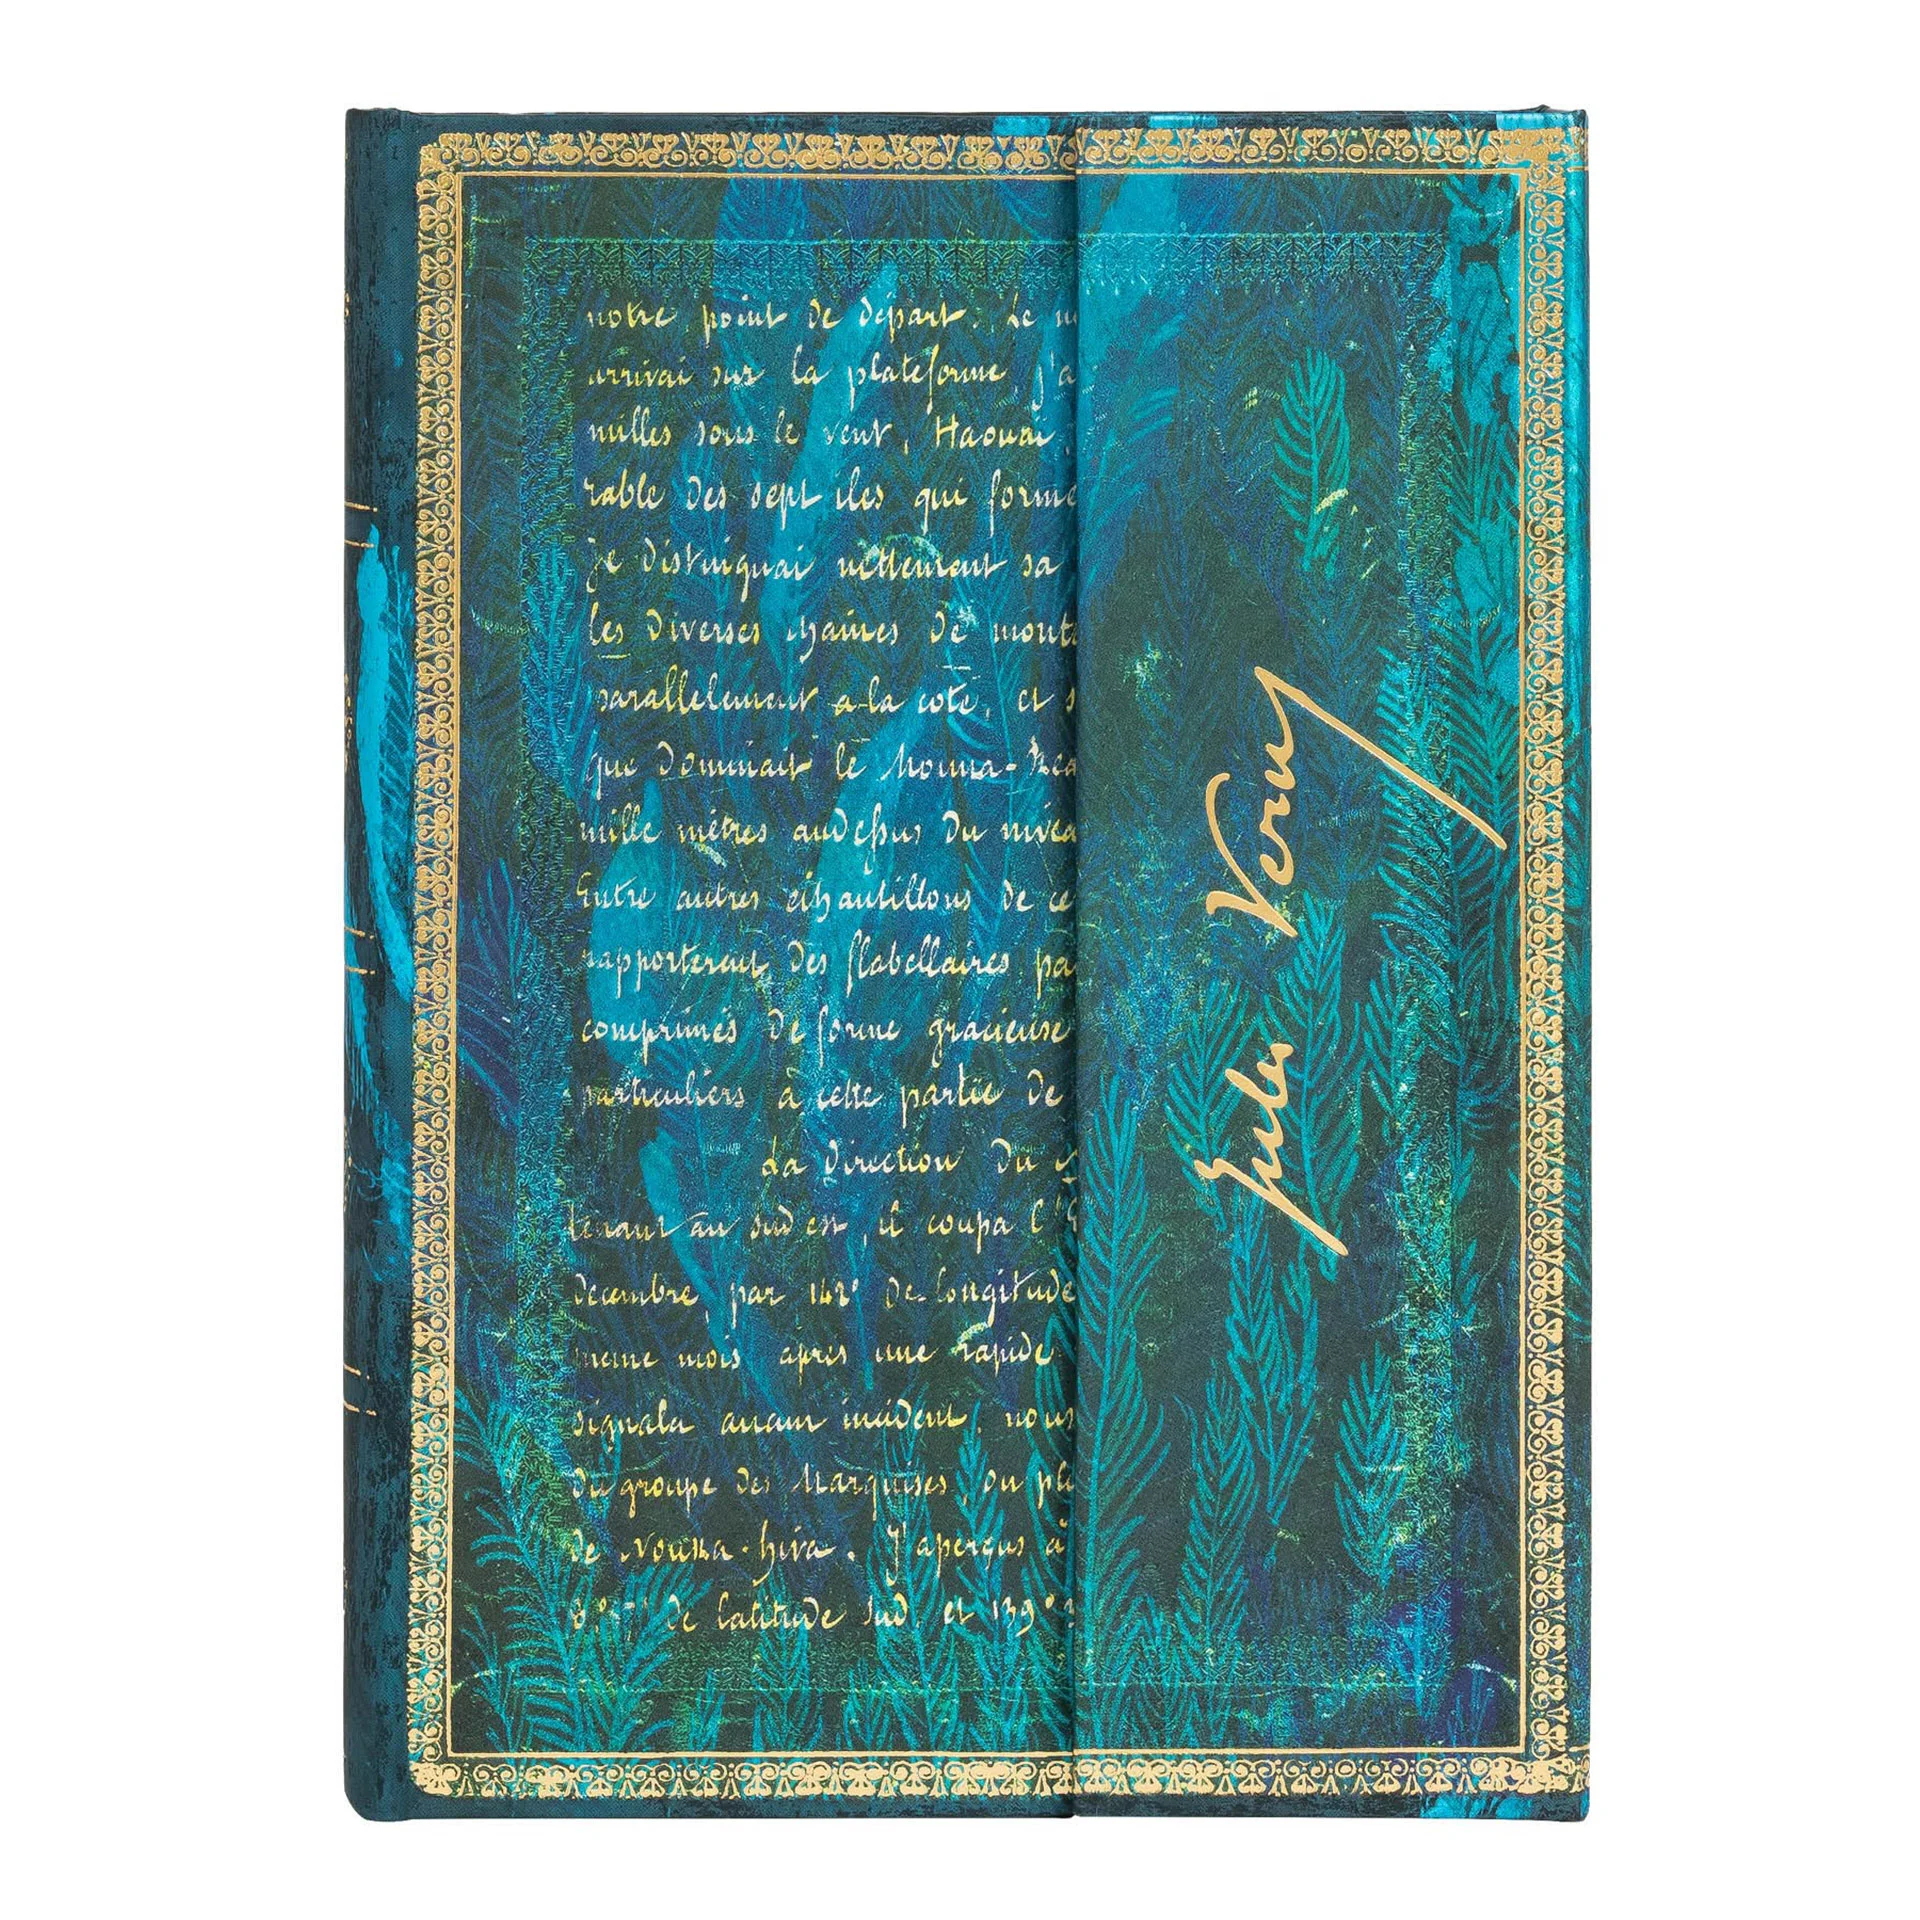 notre point de départ. Le
arrivai sur la plateforme, j'a
milles sous le vent, Haouai,
rable des sept iles qui forme
Je distinguai nettement sa
les diverses chaines de monta
parallelement a la cote, et s
que dominait le Mouna-Rea
mille mètres audessus du nivea
Entre autres échantillons de ce
rapporterent des flabellaires pa
comprimés de forme gracieuse
particuliers à cette partie de
La direction du
tenant au sud est, il coupa l'
decembre, par 142° de longitude
meme mois après une rapide
signala aucun incident, nous
du groupe des Marquises, ou pl
de Nouka-hiva. J'aperçus à
de latitude sud, et 139°
Jules Verne